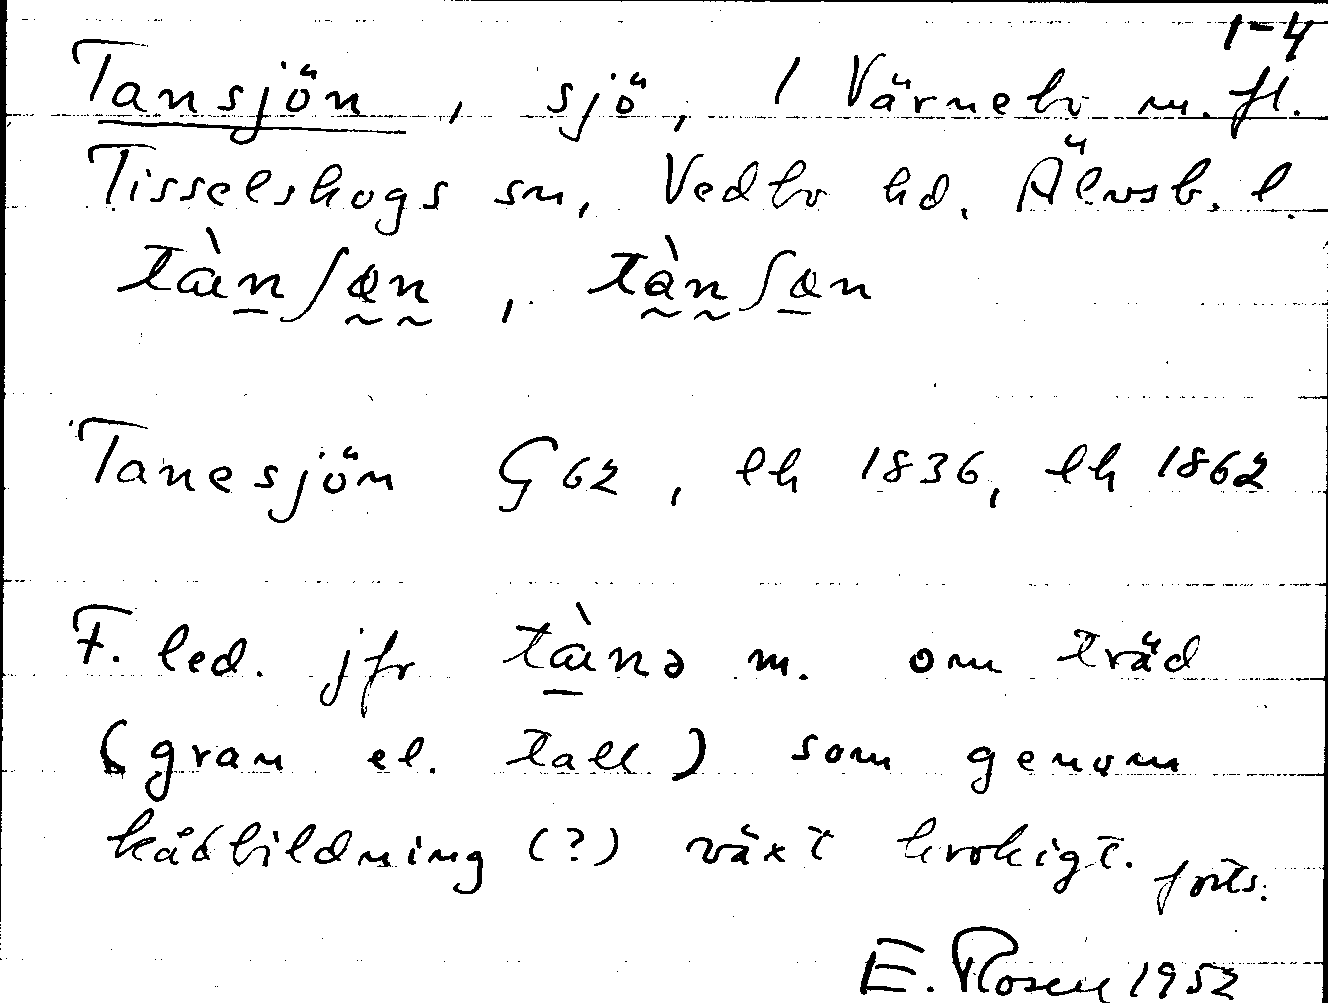 1-4
Tansjön, sjö, 1 Värnebo m. fl.
Tisselskogs sn, Vedbo hd. Älvsb. l.
tàn∫ən, tàn∫ən
Tanesjön G 62, ek 1836, ek 1862
F. led. jfr tànə m. om träd
(gran el. tall) som genom
kådbildning (?) växt krokigt. forts.
E. Rosen 1952